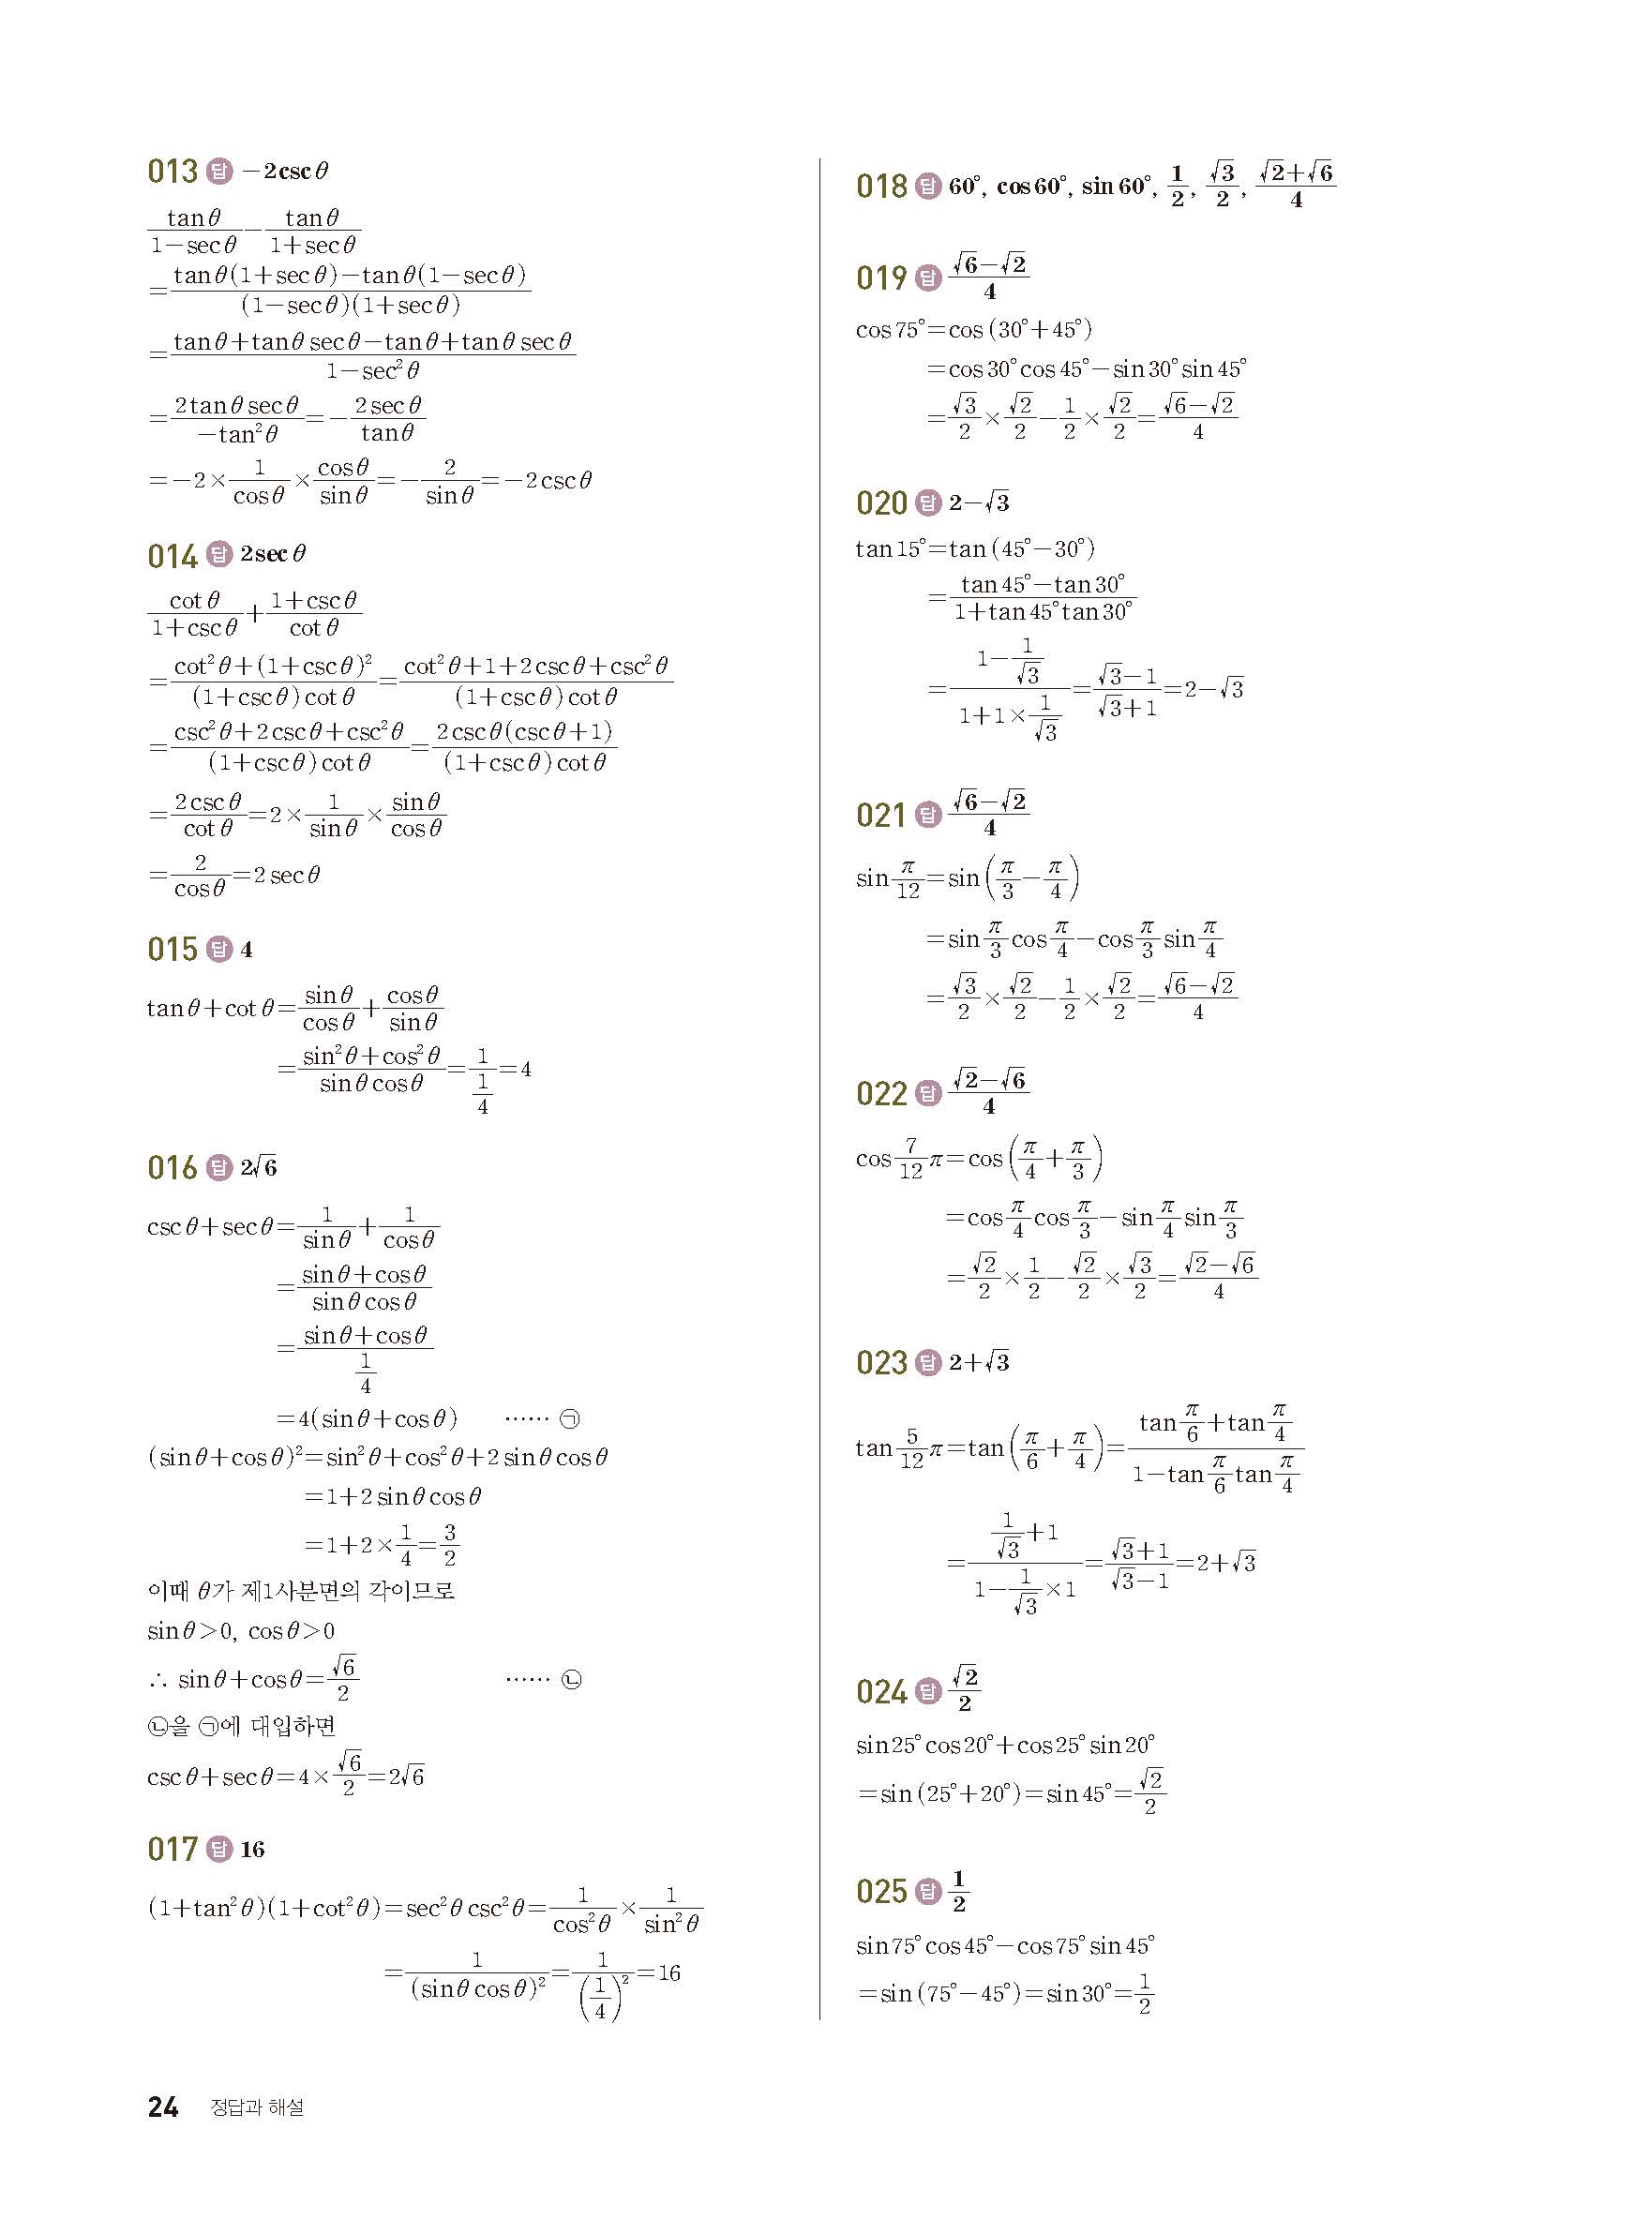 013 답 −2csc θ
tan θ/(1−sec θ) − tan θ/(1+sec θ)
= {tan θ(1+sec θ)−tan θ(1−sec θ)}/{(1−sec θ)(1+sec θ)}
= (tan θ+tan θ sec θ−tan θ+tan θ sec θ)/(1−sec² θ)
= (2tan θ sec θ)/(−tan² θ) = −(2sec θ)/(tan θ)
= −2 × 1/cos θ × cos θ/sin θ = −2/sin θ = −2csc θ
014 답 2sec θ
cot θ/(1+csc θ) + (1+csc θ)/cot θ
= {cot² θ+(1+csc θ)²}/{(1+csc θ)cot θ} = (cot² θ+1+2csc θ+csc² θ)/{(1+csc θ)cot θ}
= (csc² θ+2csc θ+csc² θ)/{(1+csc θ)cot θ} = {2csc θ(csc θ+1)}/{(1+csc θ)cot θ}
= 2csc θ/cot θ = 2 × 1/sin θ × sin θ/cos θ
= 2/cos θ = 2sec θ
015 답 4
tan θ+cot θ = sin θ/cos θ + cos θ/sin θ
= (sin² θ+cos² θ)/(sin θ cos θ) = 1/(1/4) = 4
016 답 2√6
csc θ+sec θ = 1/sin θ + 1/cos θ
= (sin θ+cos θ)/(sin θ cos θ)
= (sin θ+cos θ)/(1/4)
= 4(sin θ+cos θ) …… ㉠
(sin θ+cos θ)² = sin² θ+cos² θ+2 sin θ cos θ
= 1+2 sin θ cos θ
= 1+2×1/4 = 3/2
이때 θ가 제1사분면의 각이므로
sin θ>0, cos θ>0
∴ sin θ+cos θ = √6/2 …… ㉡
㉡을 ㉠에 대입하면
csc θ+sec θ = 4×√6/2 = 2√6
017 답 16
(1+tan² θ)(1+cot² θ) = sec² θ csc² θ = 1/cos² θ × 1/sin² θ
= 1/(sin θ cos θ)² = 1/(1/4)² = 16
018 답 60°, cos 60°, sin 60°, 1/2, √3/2, (√2+√6)/4
019 답 (√6−√2)/4
cos 75° = cos (30°+45°)
= cos 30° cos 45°−sin 30° sin 45°
= √3/2 × √2/2 − 1/2 × √2/2 = (√6−√2)/4
020 답 2−√3
tan 15° = tan (45°−30°)
= (tan 45°−tan 30°)/(1+tan 45° tan 30°)
= (1−1/√3)/(1+1×1/√3) = (√3−1)/(√3+1) = 2−√3
021 답 (√6−√2)/4
sin π/12 = sin(π/3−π/4)
= sin π/3 cos π/4 − cos π/3 sin π/4
= √3/2 × √2/2 − 1/2 × √2/2 = (√6−√2)/4
022 답 (√2−√6)/4
cos 7/12 π = cos(π/4+π/3)
= cos π/4 cos π/3 − sin π/4 sin π/3
= √2/2 × 1/2 − √2/2 × √3/2 = (√2−√6)/4
023 답 2+√3
tan 5/12 π = tan(π/6+π/4) = (tan π/6+tan π/4)/(1−tan π/6 tan π/4)
= (1/√3+1)/(1−1/√3×1) = (√3+1)/(√3−1) = 2+√3
024 답 √2/2
sin 25° cos 20°+cos 25° sin 20°
= sin (25°+20°) = sin 45° = √2/2
025 답 1/2
sin 75° cos 45°−cos 75° sin 45°
= sin (75°−45°) = sin 30° = 1/2
24 정답과 해설